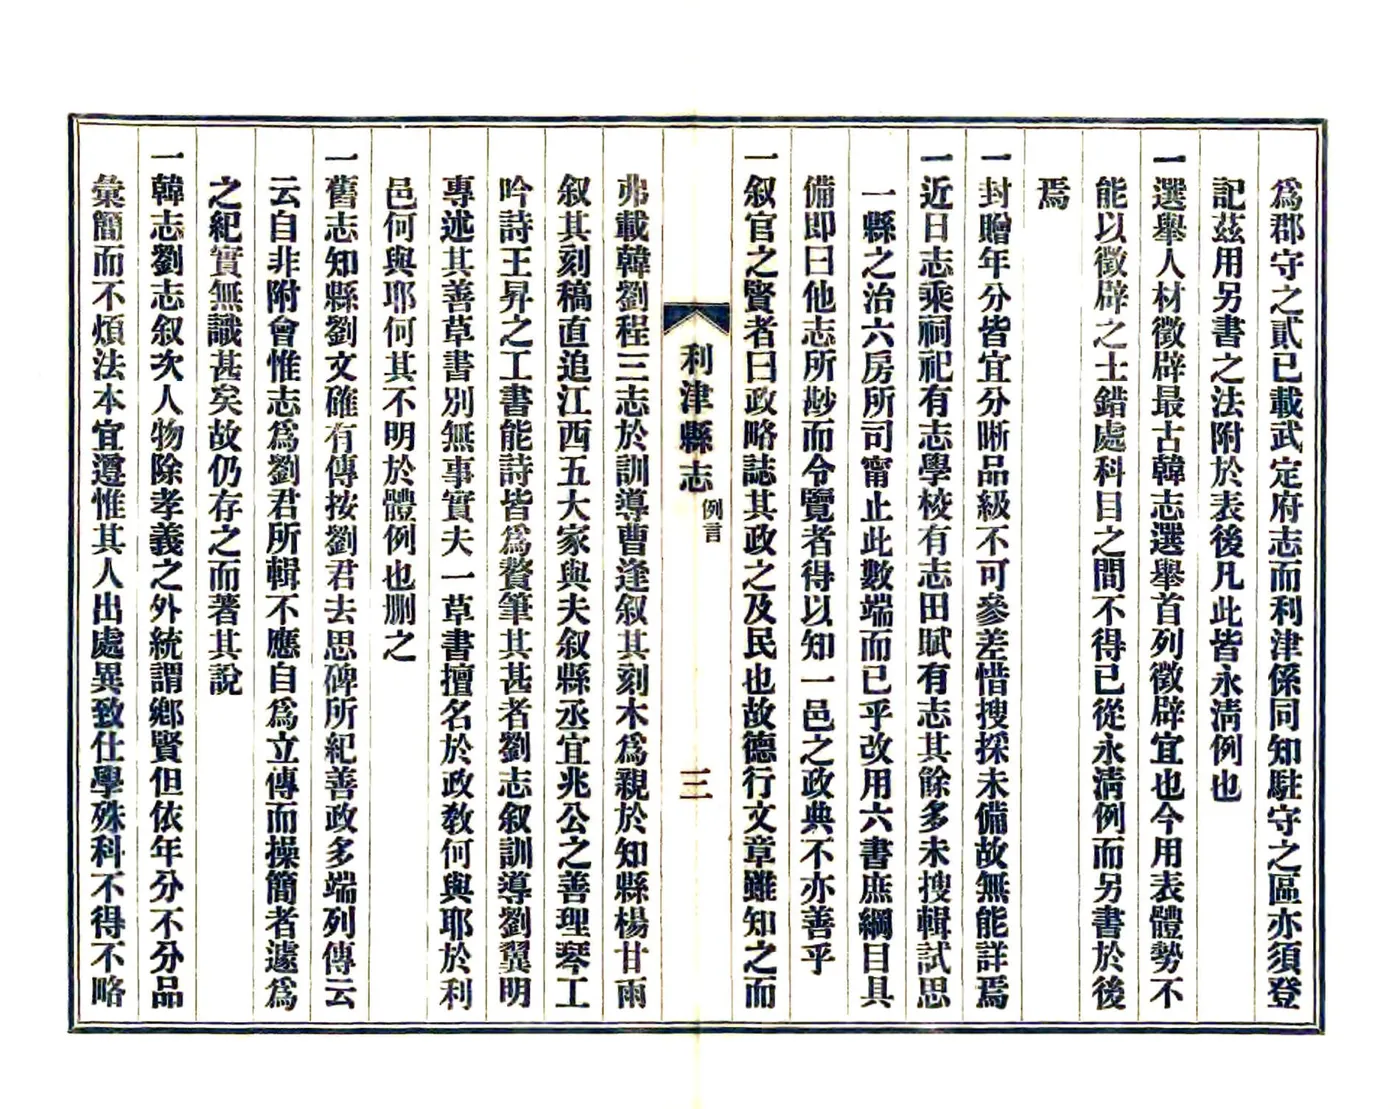 爲郡守之貳已載武定府志而利津係同知駐守之區亦須登
記茲用另書之法附於表後凡此皆永淸例也
一選舉人材徵辟最古韓志選舉首列徵辟宜也今用表體勢不
能以徵辟之士錯處科目之間不得已從永淸例而另書於後
焉
一封贈年分皆宜分晰品級不可參差惜搜採未備故無能詳焉
一近日志乘祠祀有志學校有志田賦有志其餘多未搜輯試思
一縣之治六房所司甯止此數端而已乎改用六書庶綱目具
備卽曰他志所尠而令覽者得以知一邑之政典不亦善乎
一叙官之賢者曰政略誌其政之及民也故德行文章雖知之而
利津縣志
例言
三
弗載韓劉程三志於訓導曹逢叙其刻木爲親於知縣楊甘雨
叙其刻稿直追江西五大家與夫叙縣丞宜兆公之善理琴工
吟詩王昇之工書能詩皆爲贅筆其甚者劉志叙訓導劉翼明
專述其善草書別無事實夫一草書擅名於政敎何與耶於利
邑何與耶何其不明於體例也删之
一舊志知縣劉文確有傳按劉君去思碑所紀善政多端列傳云
云自非附會惟志爲劉君所輯不應自爲立傳而操簡者遽爲
之紀實無識甚矣故仍存之而著其說
一韓志劉志叙次人物除孝義之外統謂鄕賢但依年分不分品
彙簡而不煩法本宜遵惟其人出處異致仕學殊科不得不略